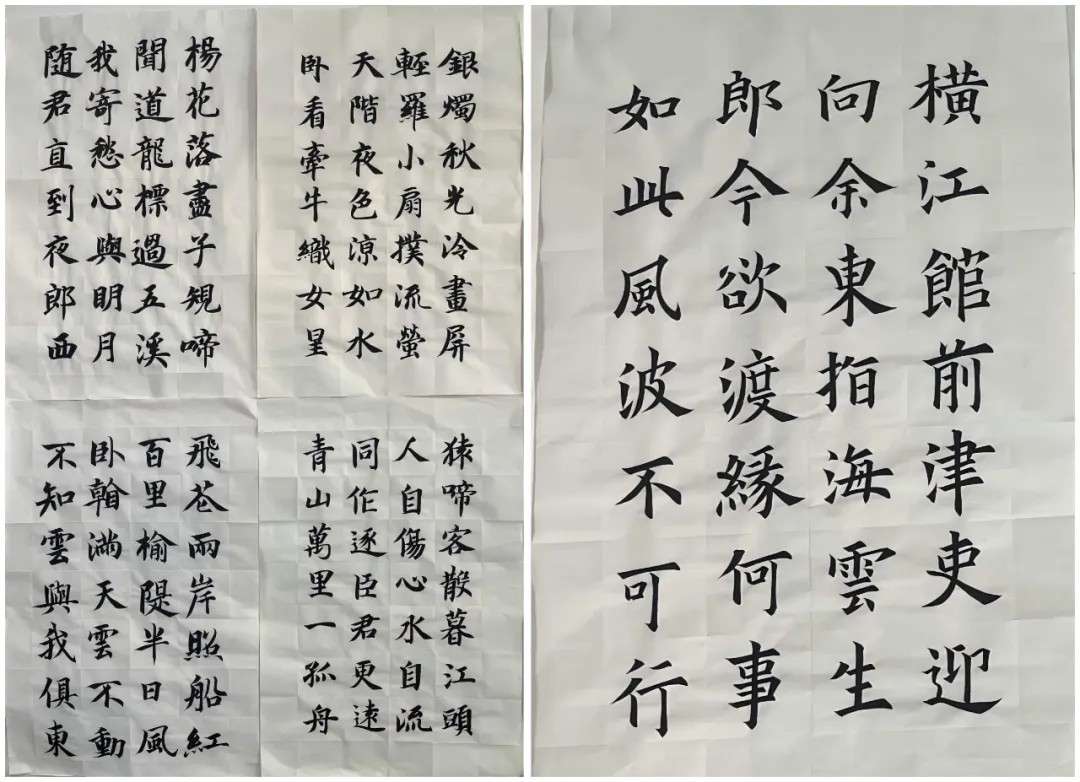 楊花落盡子規啼
聞道龍標過五溪
我寄愁心與明月
随君直到夜郎西
銀燭秋光冷畫屏
輕羅小扇撲流螢
天階夜色涼如水
卧看牽牛織女星
飛花兩岸照船紅
百里榆隄半日風
卧看滿天雲不動
不知雲與我俱東
猿啼客散暮江頭
人自傷心水自流
同作逐臣君更遠
青山萬里一孤舟
橫江館前津吏迎
向余東指海雲生
郎今欲渡緣何事
如此風波不可行